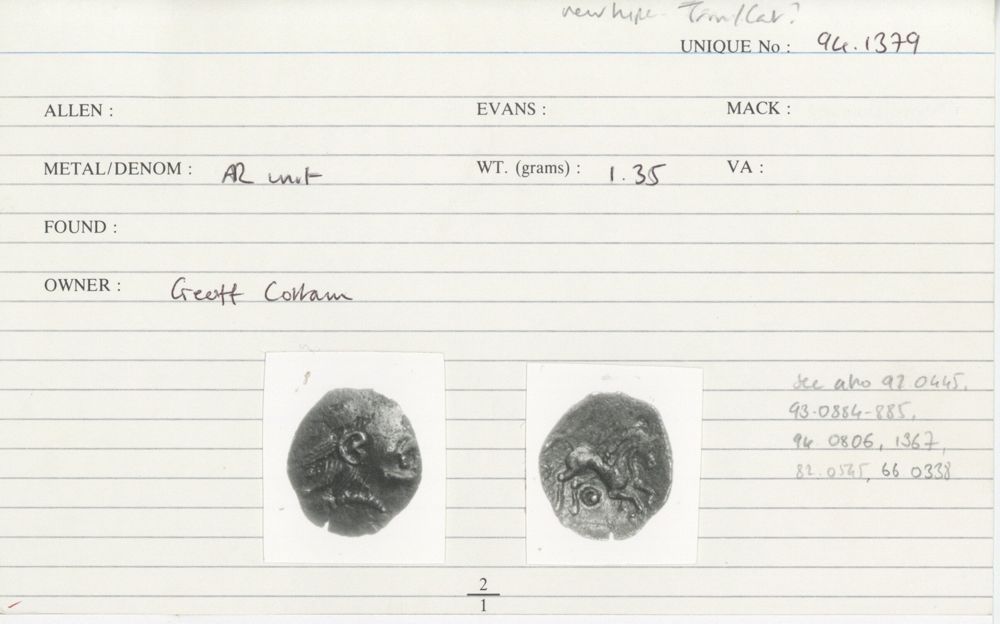 new type - Trin/Cat?
UNIQUE No : 94.1379
ALLEN : EVANS : MACK :
METAL/DENOM : AR unit WT. (grams) : 1.35 VA :
FOUND :
OWNER : Geoff Cottam
see also 92 0445,
93.0884-885,
94 0806, 1367,
82.0545, 66 0338
2
1